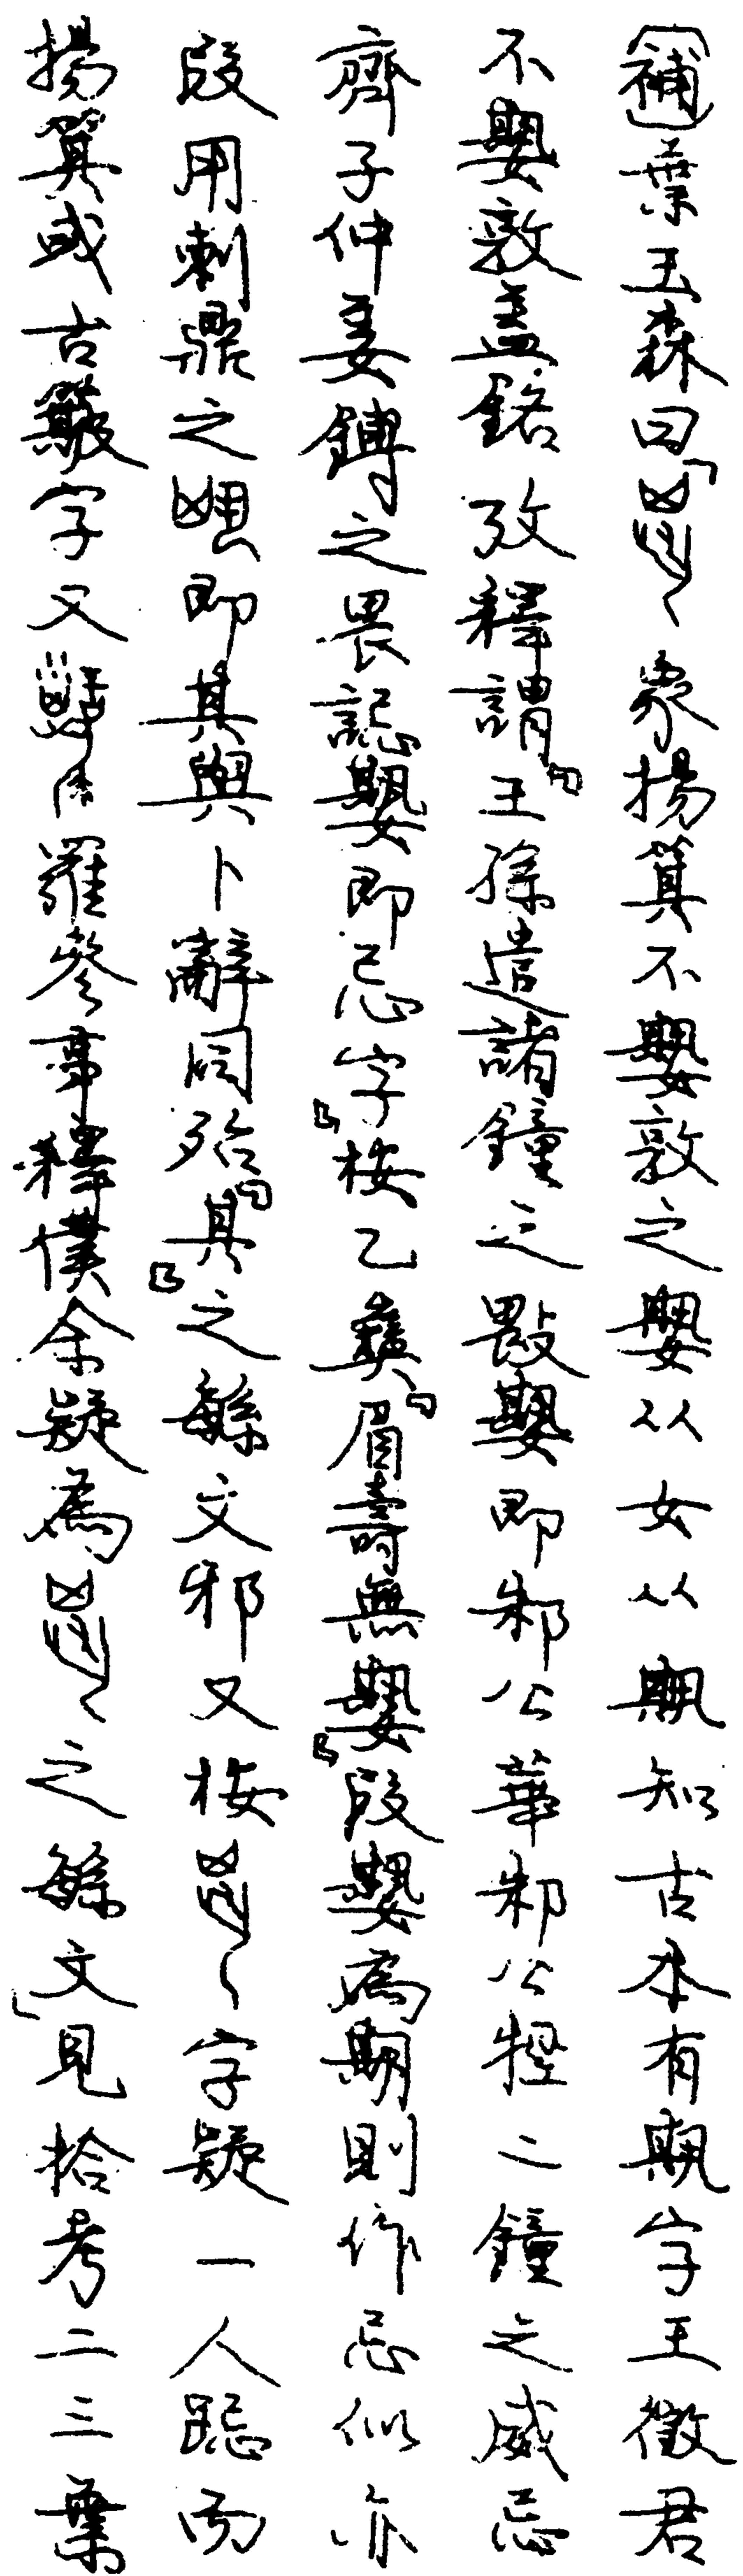 （補）葉玉森曰「象揚箕不䙺敦之䙺从女从䙺知古本有字王徵君
不敦蓋銘攷釋謂『王孫遣諸鐘之㪤即邾公華邾公牼二鐘之威忌
齊子仲姜鎛之畏誋即忌字』按乙彝『眉壽無』叚為期則作忌似亦
叚用刺鼎之即其與卜辭同殆『其』之緐文邪又按字疑一人跽而
揚箕或古簸字又羅參事釋僕余疑為之緐文」見拾考二三葉